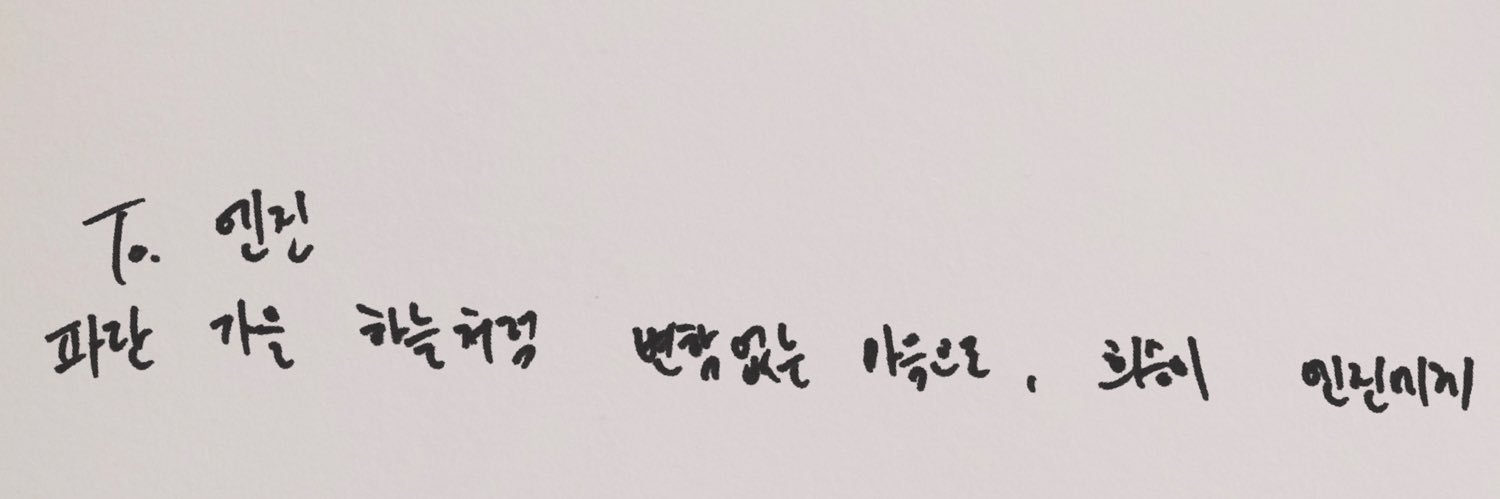 To. 엔진
파란 가을 하늘처럼 변함없는 마음으로, 희승이 엔진에게